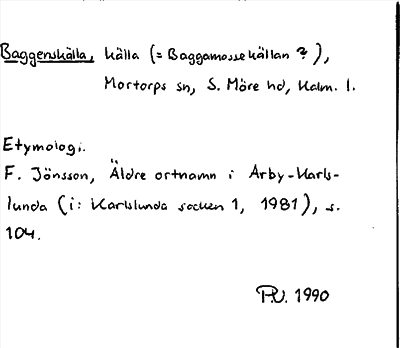 Baggenskälla, källa (= Baggamossekällan ?),
Mortorps sn, S. Möre hd, Kalm. l.
Etymologi.
F. Jönsson, Äldre ortnamn i Arby-Karls-
lunda (i: Karlslunda socken 1, 1981), s.
104.
P.U. 1990